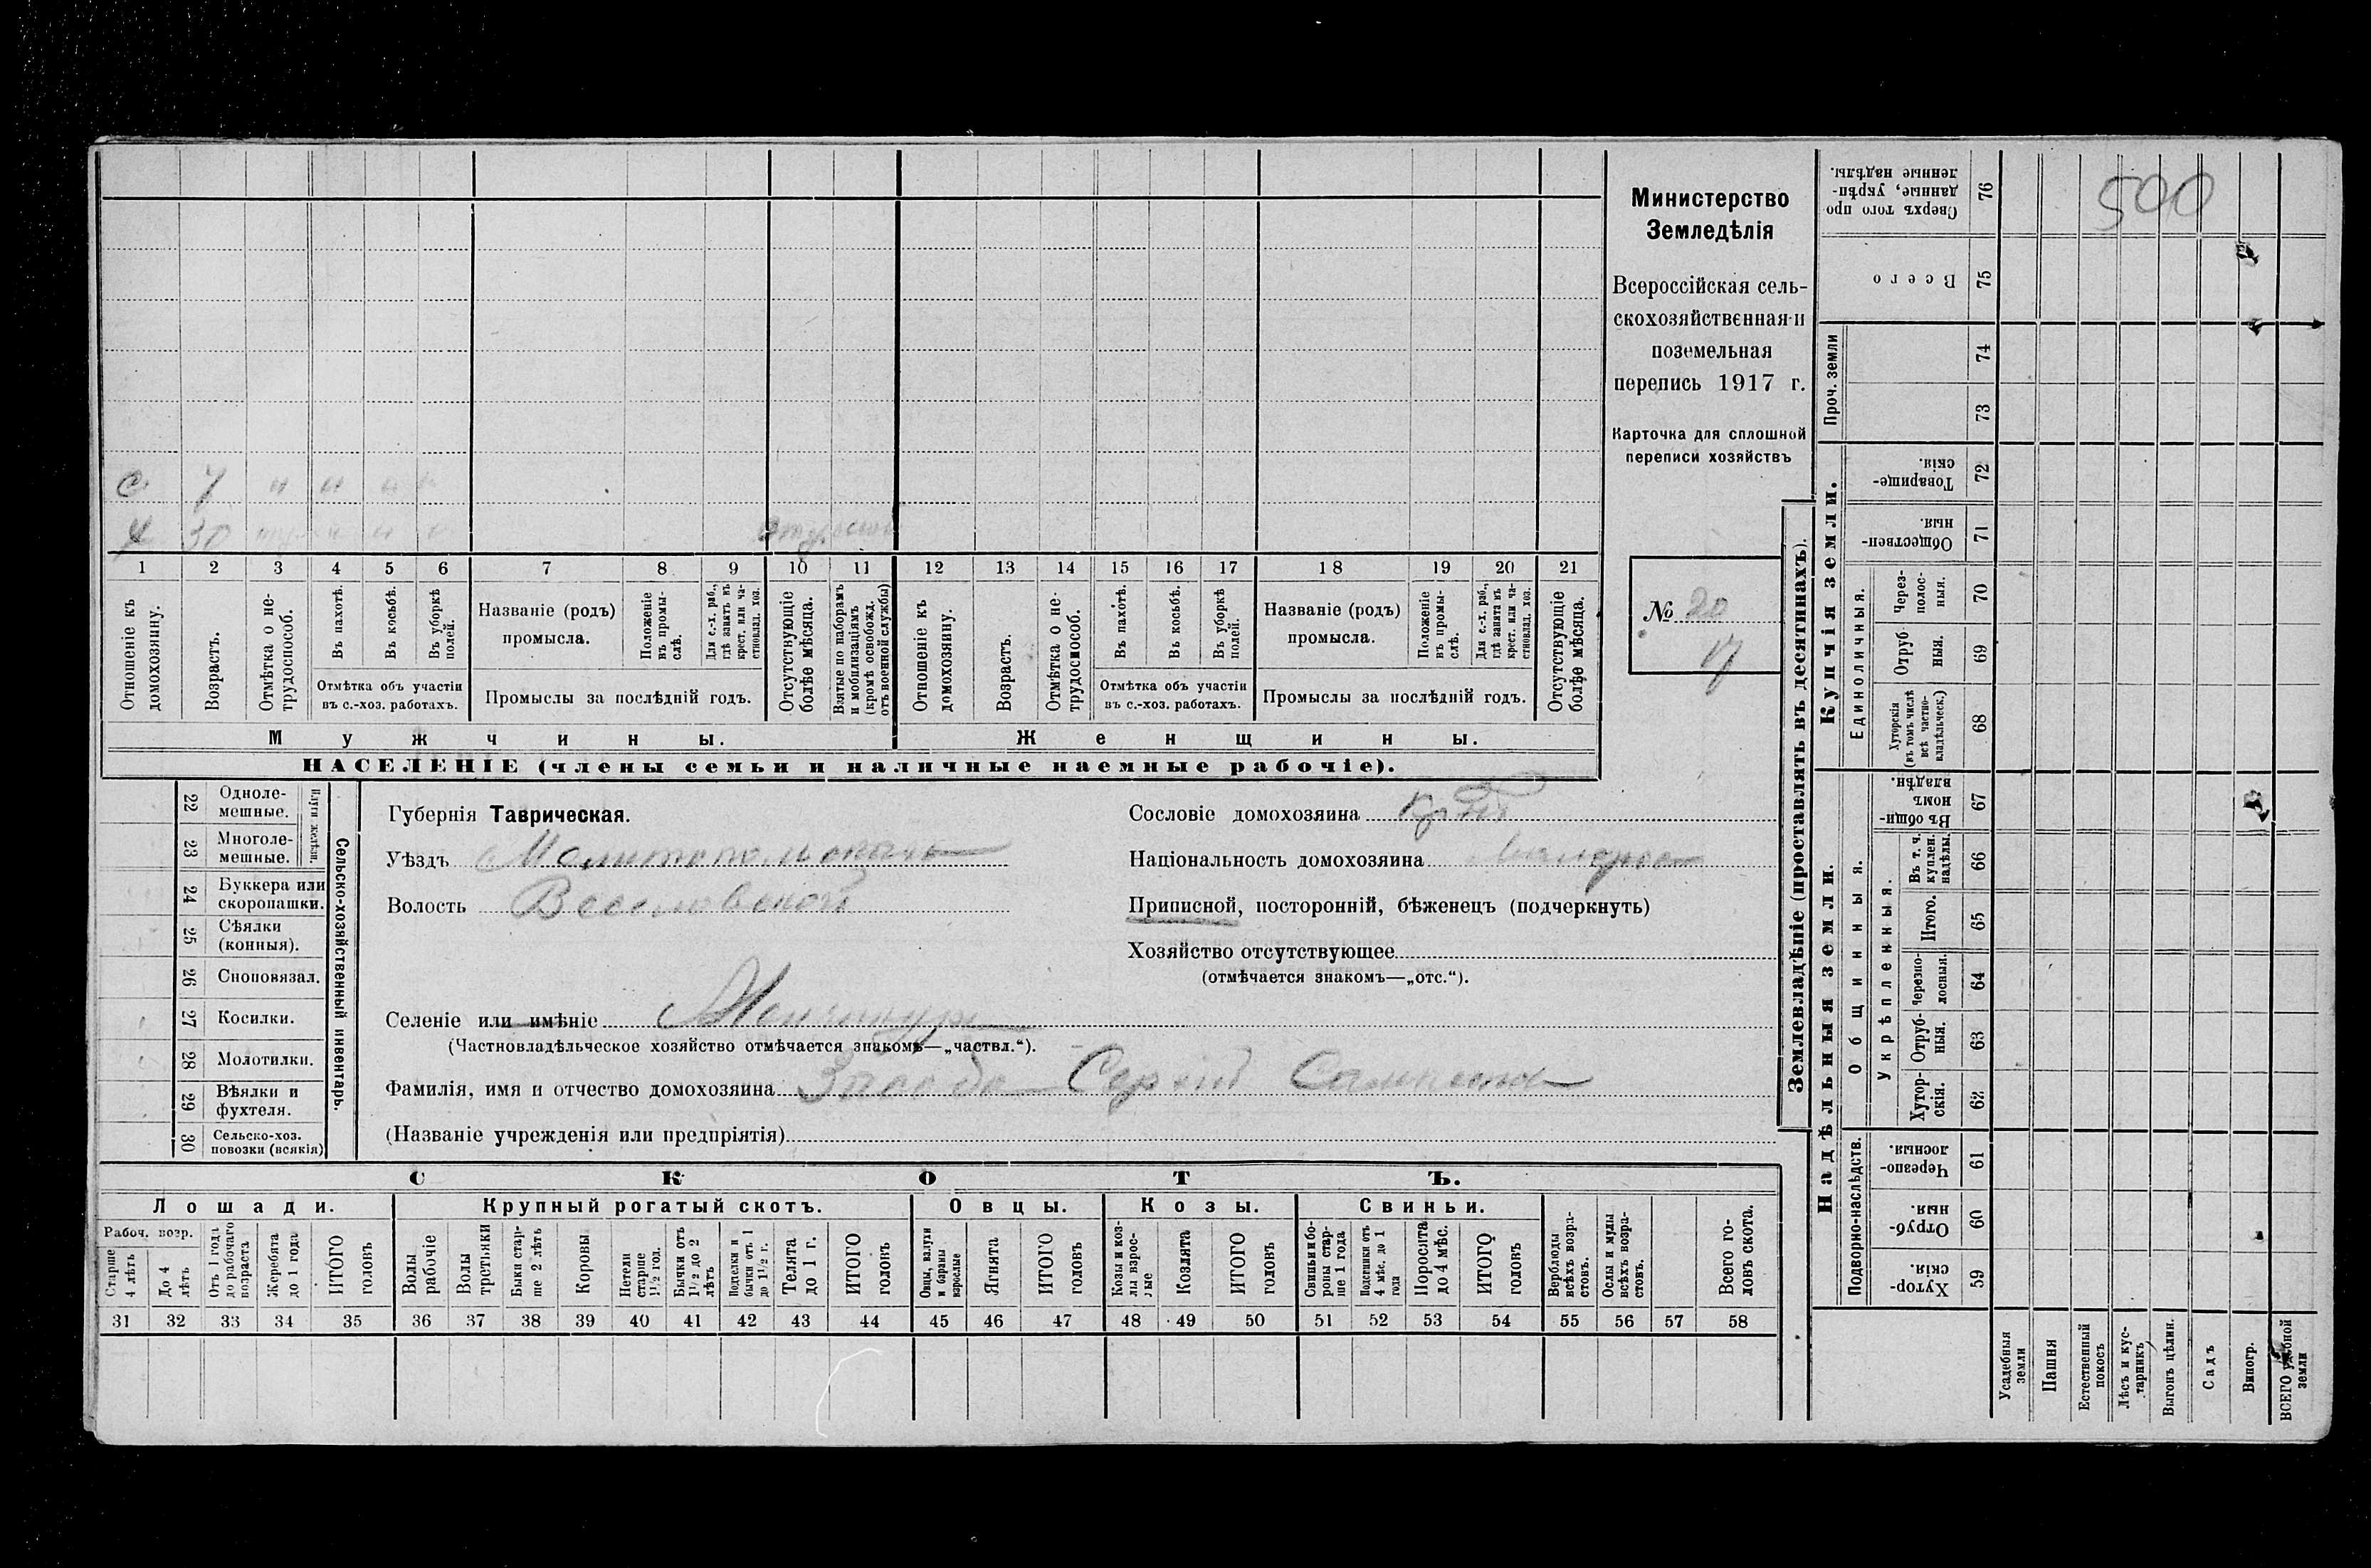 Министерство
Земледѣлія
Всероссійская сель-
скохозяйственная и
поземельная
перепись 1917 г.
Карточка для сплошной
переписи хозяйствъ
№ 20
17
с 7
х 30
1 2 3 4 5 6 7 8 9 10 11 12 13 14 15 16 17 18 19 20 21
Отношеніе къ домохозяину.
Возрастъ.
Отмѣтка о не-трудоспособ.
Въ пахотѣ.
Въ косьбѣ.
Въ уборкѣ полей.
Отмѣтка объ участіи
въ с.-хоз. работахъ.
Названіе (родъ)
промысла.
Положеніе въ промы-слѣ.
Для с.-х. раб., гдѣ занятъ въ крест. или ча-стновлад. хоз.
Промыслы за послѣдній годъ.
Отсутствующіе болѣе мѣсяца.
Взятые по наборамъ и мобилизаціямъ (кромѣ освобожд. отъ военной службы)
Отношеніе къ домохозяину.
Возрастъ.
Отмѣтка о не-трудоспособ.
Въ пахотѣ.
Въ косьбѣ.
Въ уборкѣ полей.
Отмѣтка объ участіи
въ с.-хоз. работахъ.
Названіе (родъ)
промысла.
Положеніе въ промы-слѣ.
Для с.-х. раб., гдѣ занята въ крест. или ча-стновлад. хоз.
Промыслы за послѣдній годъ.
Отсутствующіе болѣе мѣсяца.
Мужчины.
Женщины.
НАСЕЛЕНІЕ (члены семьи и наличные наемные рабочіе).
22 Одноле-мешные.
23 Многоле-мешные.
Плуги желѣзн.
24 Буккера или скоропашки.
25 Сѣялки (конныя).
26 Сноповязал.
27 Косилки.
28 Молотилки.
29 Вѣялки и фухтеля.
30 Сельско-хоз. повозки (всякія)
Сельско-хозяйственный инвентарь.
Губернія Таврическая.
Уѣздъ Мелитопольскаго
Волость Веселовской
Селеніе или имѣніе Менчикуры
(Частновладѣльческое хозяйство отмѣчается знакомъ—„частвл.“).
Фамилія, имя и отчество домохозяина Сергѣй
(Названіе учрежденія или предпріятія)
Сословіе домохозяина
Національность домохозяина малорос
Приписной, посторонній, бѣженецъ (подчеркнуть)
Хозяйство отсутствующее
(отмѣчается знакомъ—„отс.“).
СКОТЪ.
Лошади.
Крупный рогатый скотъ.
Овцы.
Козы.
Свиньи.
Рабоч. возр.
Старше 4 лѣтъ
До 4 лѣтъ
Отъ 1 года до рабочаго возраста
Жеребята до 1 года
ИТОГО головъ
Волы рабочіе
Волы третьяки
Быки стар-ше 2 лѣтъ
Коровы
Нетели старше 1½ год.
Бычки отъ 1½ до 2 лѣтъ
Подтелки и бычки отъ 1 до 1½ г.
Телята до 1 г.
ИТОГО головъ
Овцы, валухи и бараны взрослые
Ягнята
ИТОГО головъ
Козы и коз-лы взрос-лые
Козлята
ИТОГО головъ
Свиньи и бо-ровы стар-ше 1 года
Подсвинки отъ 4 мѣс. до 1 года
Поросята до 4 мѣс.
ИТОГО головъ
Верблюды всѣхъ возра-стовъ.
Ослы и мулы всѣхъ возра-стовъ.
Всего го-ловъ скота.
31 32 33 34 35 36 37 38 39 40 41 42 43 44 45 46 47 48 49 50 51 52 53 54 55 56 57 58
Землевладѣніе (проставлять въ десятинахъ).
Купчія земли.
Надѣльныя земли.
Сверхъ того про-данные, укрѣп-ленные надѣлы. 76
500
Всего 75
Проч. земли 74
73
Товарище-скія. 72
Обществен-ныя. 71
Единоличныя.
Через-полос-ныя. 70
Отруб-ныя. 69
Хуторскія (въ томъ числѣ всѣ частно-владѣльческ.) 68
Общинныя.
Въ общи-номъ владѣн. 67
Укрѣпленныя.
Въ т. ч. куплен. надѣлы. 66
Итого. 65
Черезпо-лосныя. 64
Отруб-ныя. 63
Хутор-скія. 62
Подворно-наслѣдств.
Черезпо-лосныя 61
Отруб-ныя. 60
Хутор-скія. 59
Усадебныя земли
Пашня
Естественный покосъ
Лѣсъ и кус-тарникъ
Выгонъ цѣлин.
Садъ
Виногр.
ВСЕГО удобной земли